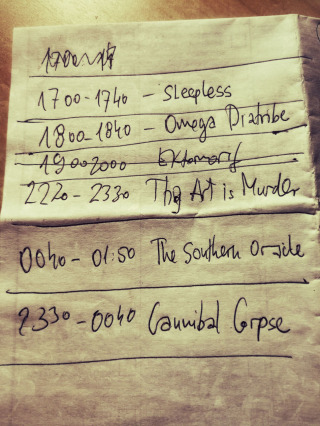 1700-1740 - Sleepless
1800-1840 - Omega Diatribe
1900 2000 Ektomorf
2220 - 2330 Thy Art is Murder
0040 - 01:50 The Southern Oracle
2330 - 0040 Cannibal Corpse